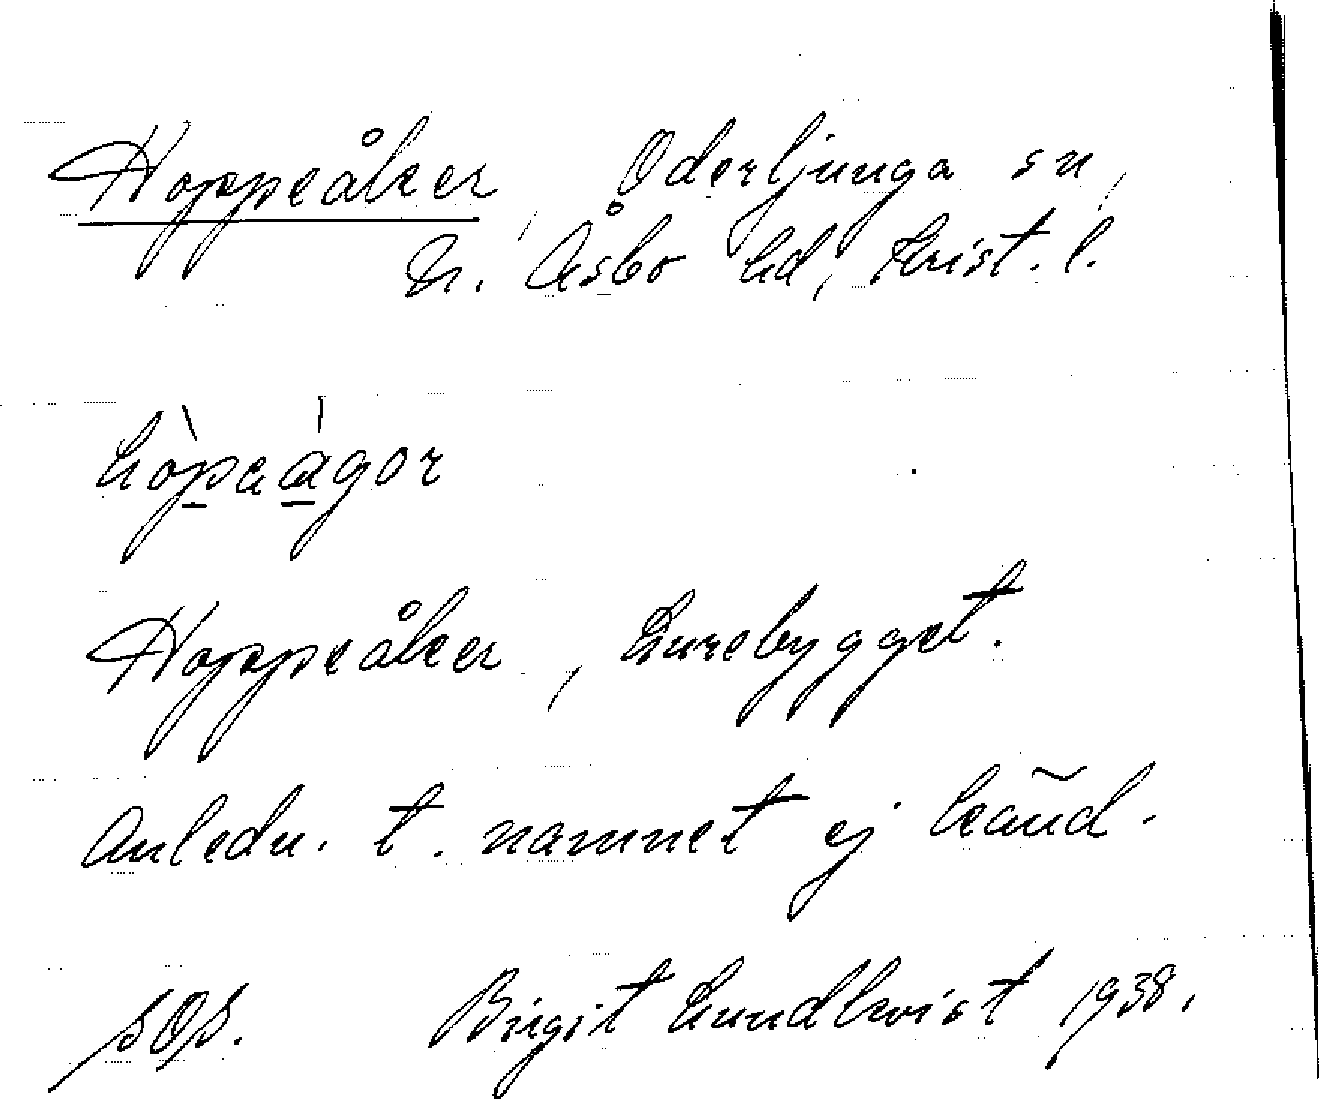 Hoppeåker, Oderljunga sn,
N. Åsbo hd, Krist. l.
hòpeágor
Hoppeåker, Lurebygget.
Anledn. t. namnet ej känd.
SOS. Birgit Lundkvist 1938.